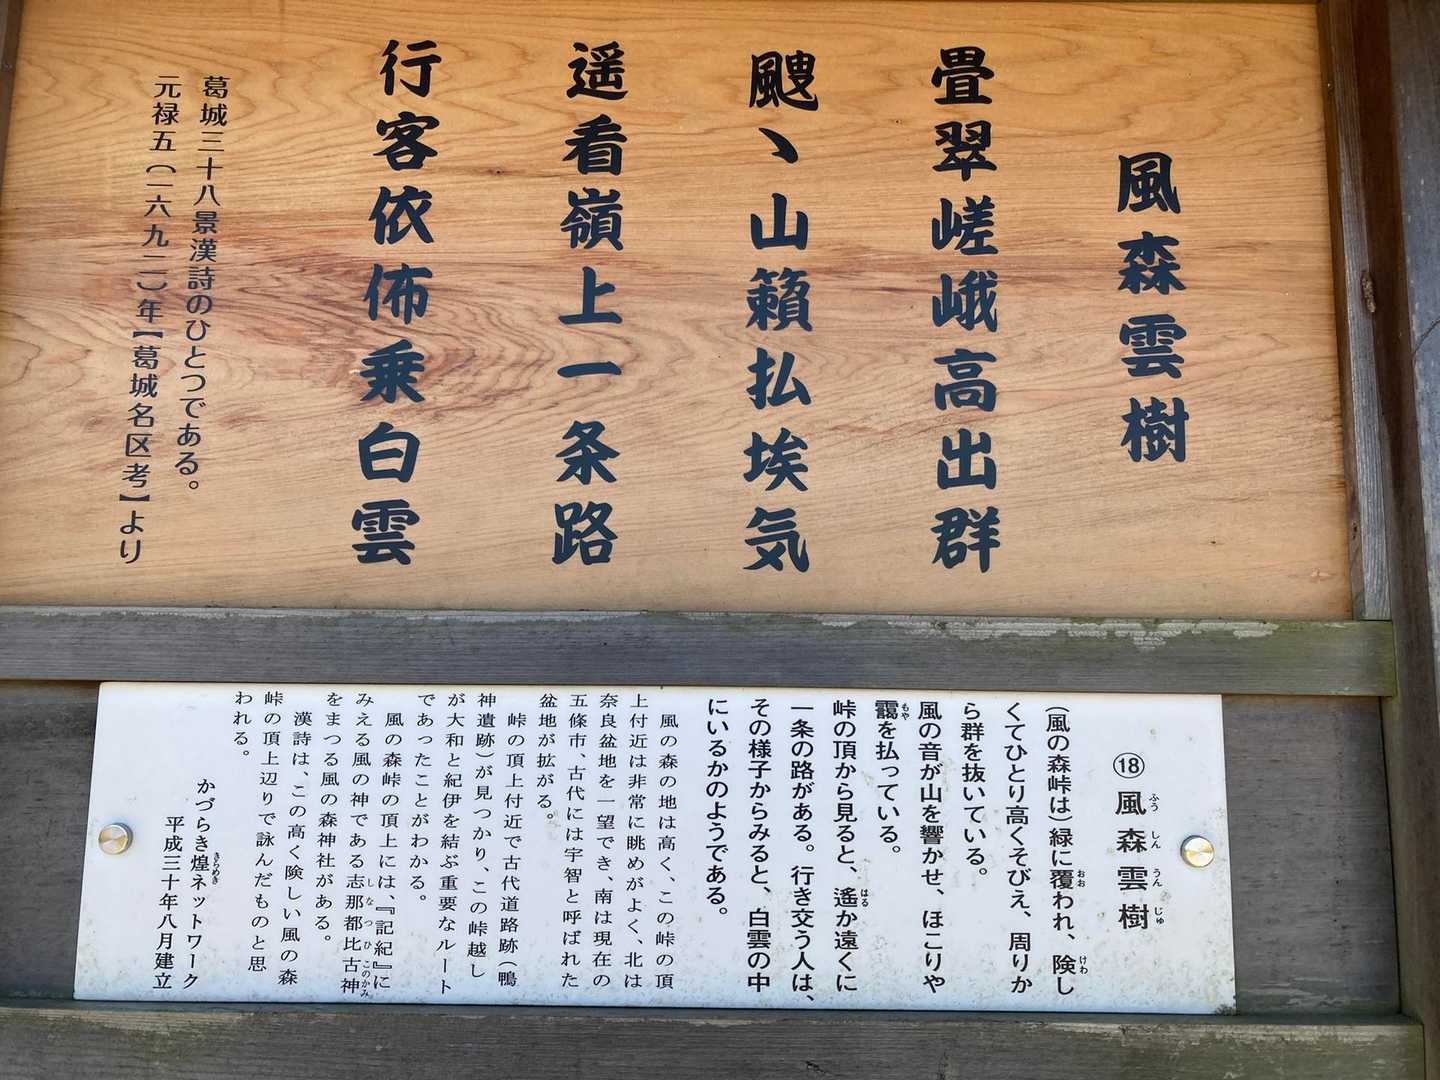 風森雲樹
畳翠嵯峨高出群
颼〻山籟払埃気
遥看嶺上一条路
行客依佈乗白雲
葛城三十八景漢詩のひとつである。
元禄五(一六九二)年【葛城名区考】より
⑱風森雲樹
ふうしんうんじゅ
(風の森峠は)緑に覆われ、険し
おお
けわ
くてひとり高くそびえ、周りか
ら群を抜いている。
風の音が山を響かせ、ほこりや
靄を払っている。
もや
峠の頂から見ると、遙か遠くに
はる
一条の路がある。行き交う人は、
その様子からみると、白雲の中
にいるかのようである。
風の森の地は高く、この峠の頂
上付近は非常に眺めがよく、北は
奈良盆地を一望でき、南は現在の
五條市、古代には宇智と呼ばれた
盆地が拡がる。
峠の頂上付近で古代道路跡(鴨
神遺跡)が見つかり、この峠越し
が大和と紀伊を結ぶ重要なルート
であったことがわかる。
風の森峠の頂上には、『記紀』に
みえる風の神である志那都比古神
しなつひこのかみ
をまつる風の森神社がある。
漢詩は、この高く険しい風の森
峠の頂上辺りで詠んだものと思
われる。
かづらき煌ネットワーク
きらめき
平成三十年八月建立